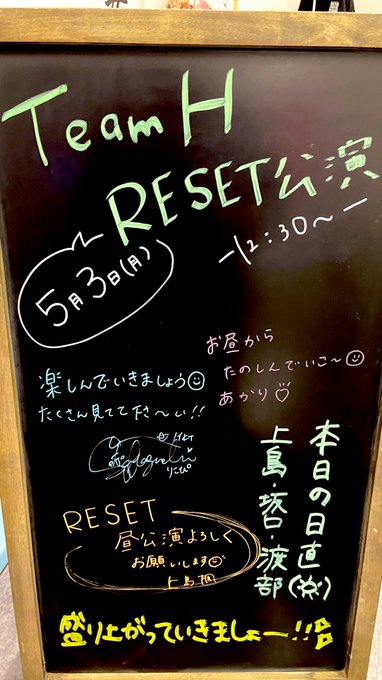 Team H
RESET公演
5月3日(月)
-12:30~-
お昼から
たのしんでいこ~☺
あかり♡
楽しんでいきましょう☺
たくさん見てて下さ~い!!
HKT
りこぴ
本日の日直(☼)
上島・坂口・渡部
RESET
昼公演よろしく
お願いします
上島楓
盛り上がっていきましょー!!